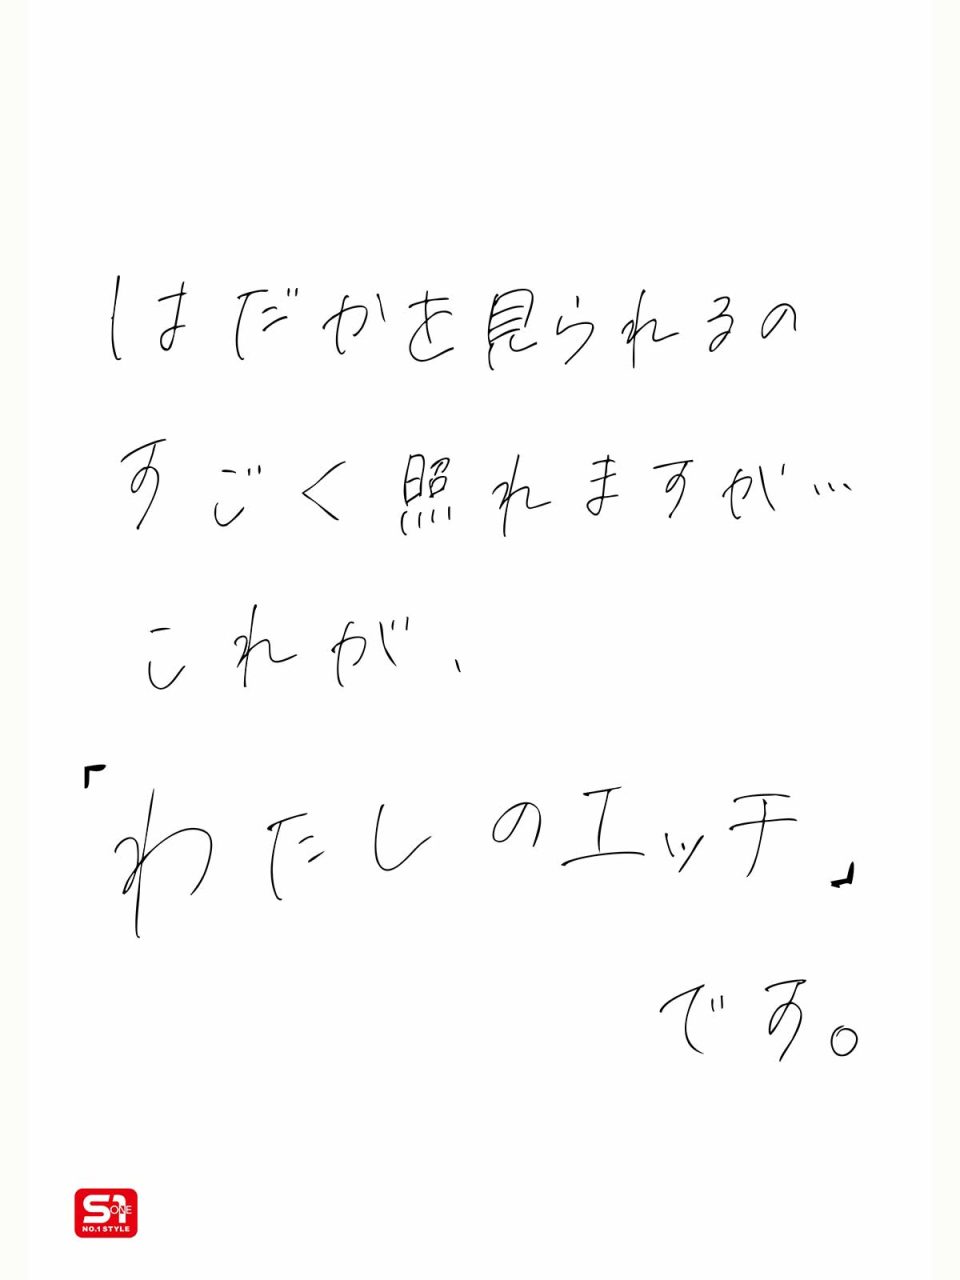 はだかを見られるの
すごく照れますが…
これが、
「わたしのエッチ」
です。
S1
ONE
NO.1 STYLE